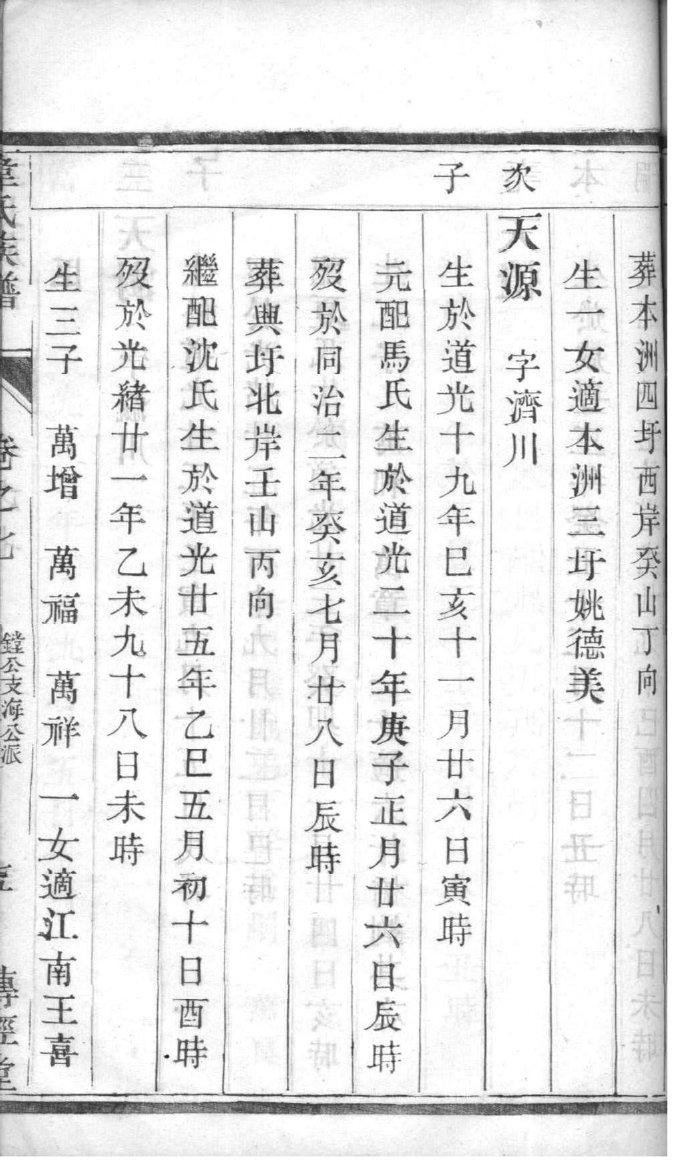 葬本洲四圩西岸癸山丁向
生一女適本洲三圩姚德美
次子
天源 字濟川
生於道光十九年己亥十一月廿六日寅時
元配馬氏生於道光二十年庚子正月廿六日辰時
歿於同治二年癸亥七月廿八日辰時
葬典圩北岸壬山丙向
繼配沈氏生於道光廿五年乙巳五月初十日酉時
歿於光緒廿一年乙未九十八日未時
生三子 萬增 萬福 萬祥 一女適江南王喜
氏族譜
卷之七
鏜公支海公派
傳經堂